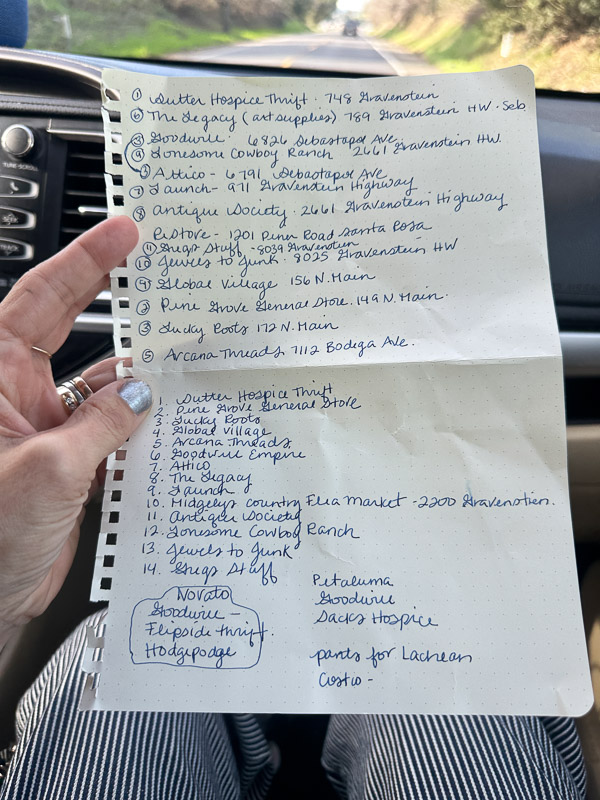 ① Sutter Hospice Thrift · 748 Gravenstein
⑥ The Legacy (art supplies) 789 Gravenstein HW · Seb.
Goodwill · 6826 Sebastopol Ave.
⑨ Lonesome Cowboy Ranch 2661 Gravenstein HW.
Attico - 6791 Sebastopol Ave
⑦ Launch - 971 Gravenstein Highway
⑧ Antique Society · 2661 Gravenstein Highway
ReStore - 1201 Piner Road Santa Rosa
⑪ Gregs Stuff - 8039 Gravenstein
⑩ Jewels to Junk · 8025 Gravenstein HW
④ Global Village 156 N. Main
② Pine Grove General Store. 149 N. Main.
③ Lucky Roots 172 N. Main
⑤ Arcana Threads 7112 Bodega Ave.
1. Sutter Hospice Thrift
2. Pine Grove General Store
3. Lucky Roots
4. Global Village
5. Arcana Threads
6. Goodwill Empire
7. Attico
8. The Legacy
9. Launch
10. Midgleys Country Flea Market - 2200 Gravenstien.
11. Antique Society
12. Lonesome Cowboy Ranch
13. Jewels to Junk
14. Gregs Stuff
Novato
Goodwill -
Flipside thrift.
Hodgepodge
Petaluma
Goodwill
Sacks Hospice
pants for Lachlan
Costco -